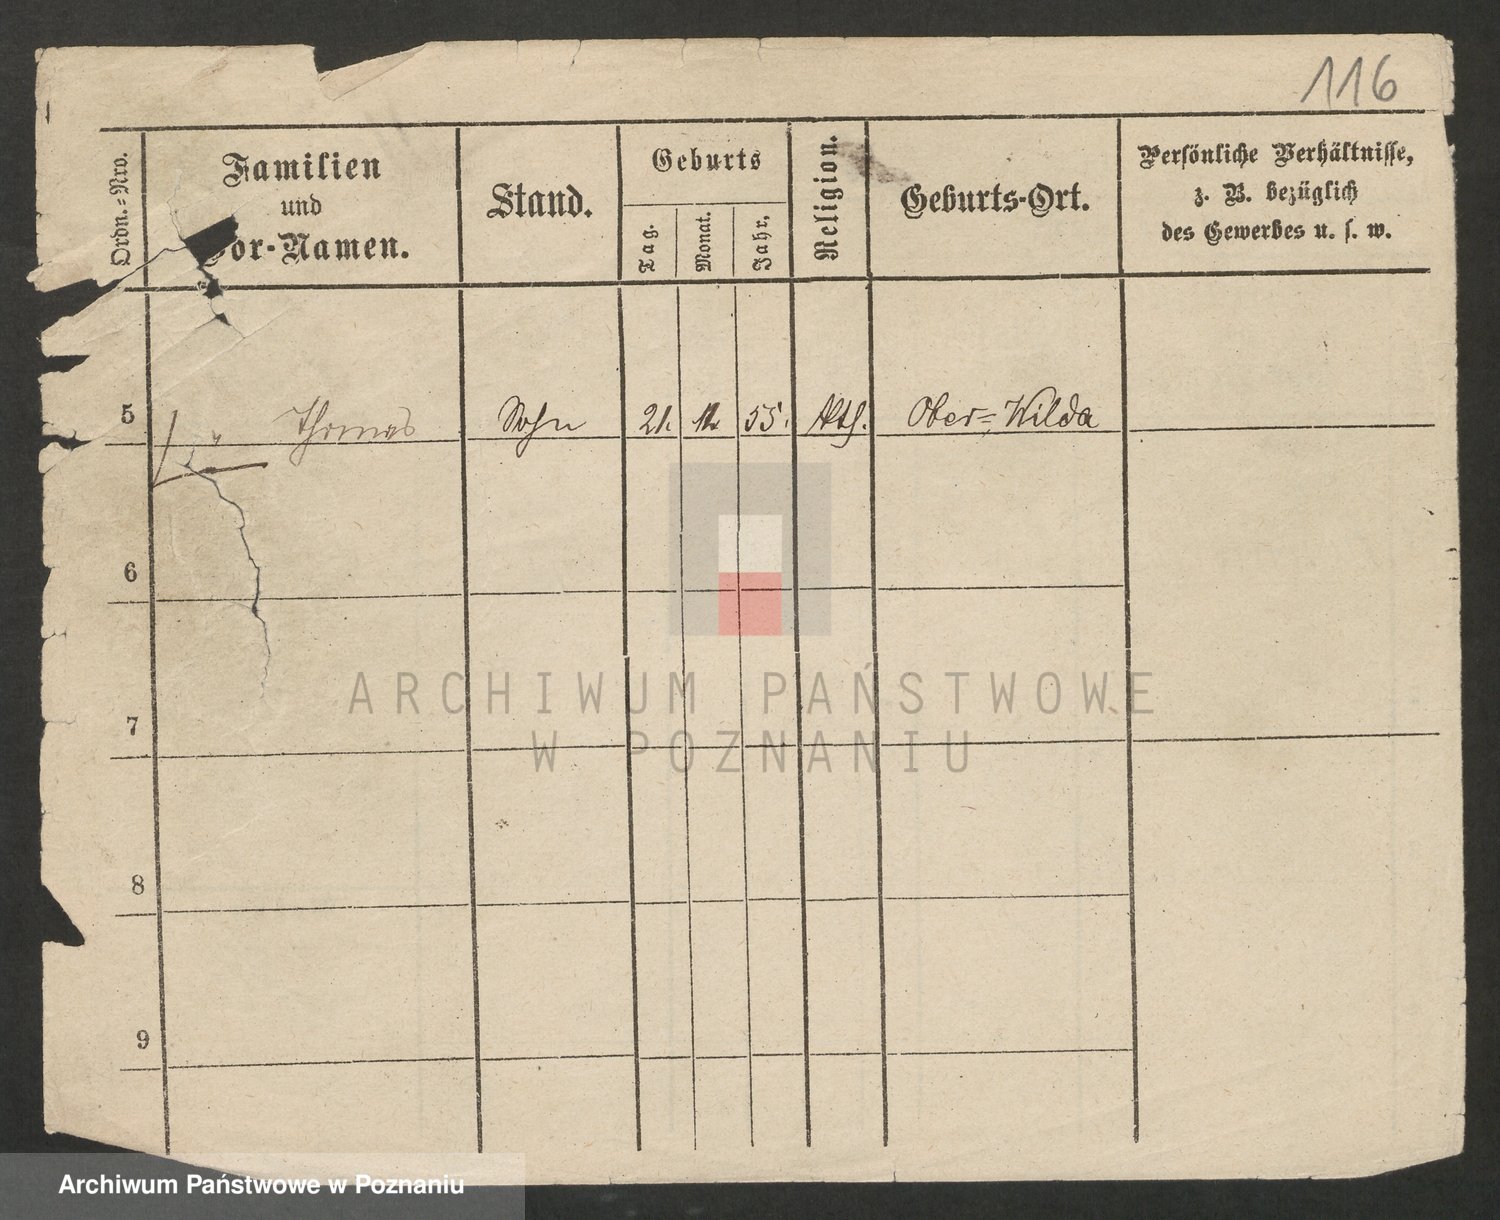 116
Ordn.-Nro.
Familien
und
Vor-Namen.
Stand.
Geburts
Tag.
Monat.
Jahr.
Religion.
Geburts-Ort.
Persönliche Verhältnisse,
z. B. bezüglich
des Gewerbes u. s. w.
5 " Thomas Sohn 21. 12 55. kth. Ober-Wilda
6
7
8
9
ARCHIWUM PAŃSTWOWE
W POZNANIU
Archiwum Państwowe w Poznaniu